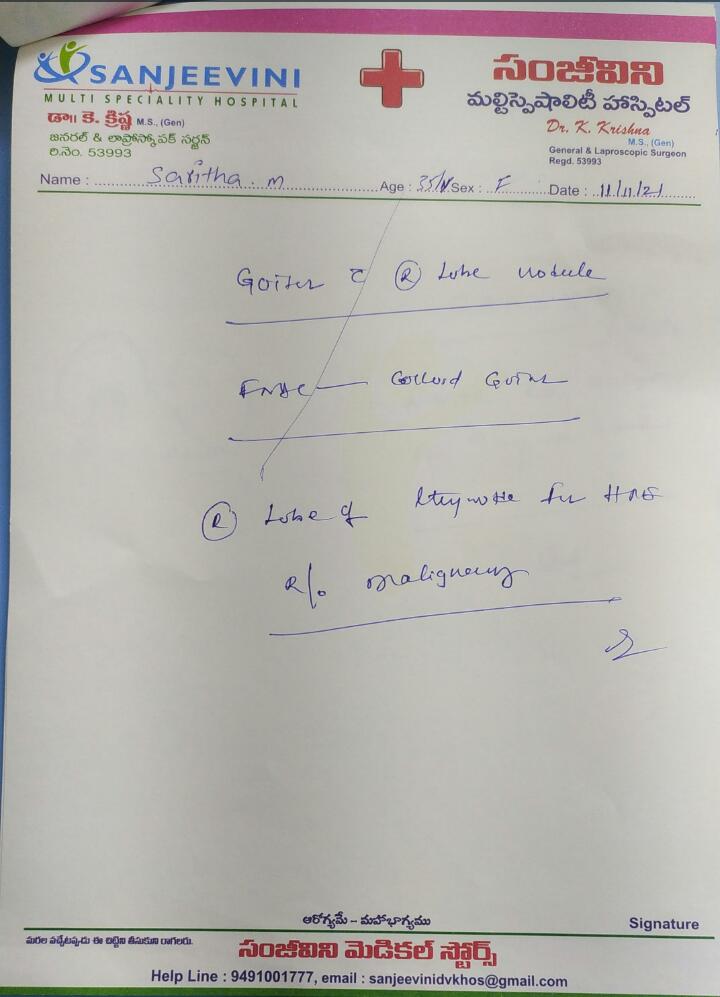 SANJEEVINI
MULTI SPECIALITY HOSPITAL
డా॥ కె. క్రిష్ణ M.S., (Gen)
జనరల్ & లాప్రోస్కోపక్ సర్జన్
రి.నెం. 53993
సంజీవిని
మల్టిస్పెషాలిటీ హాస్పిటల్
Dr. K. Krishna
M.S., (Gen)
General & Laproscopic Surgeon
Regd. 53993
Name : Saritha. M Age : 35/ Sex : F Date : 11/11/21
Goiter c̄ (R) Lobe nodule
FNAC — Colloid Goiter
(R) Lobe of for
R/o malignancy
ఆరోగ్యమే - మహాభాగ్యము
Signature
మరల వచ్చేటప్పుడు ఈ చిట్టిని తీసుకుని రాగలరు.
సంజీవిని మెడికల్ స్టోర్స్
Help Line : 9491001777, email : sanjeevinidvkhos@gmail.com